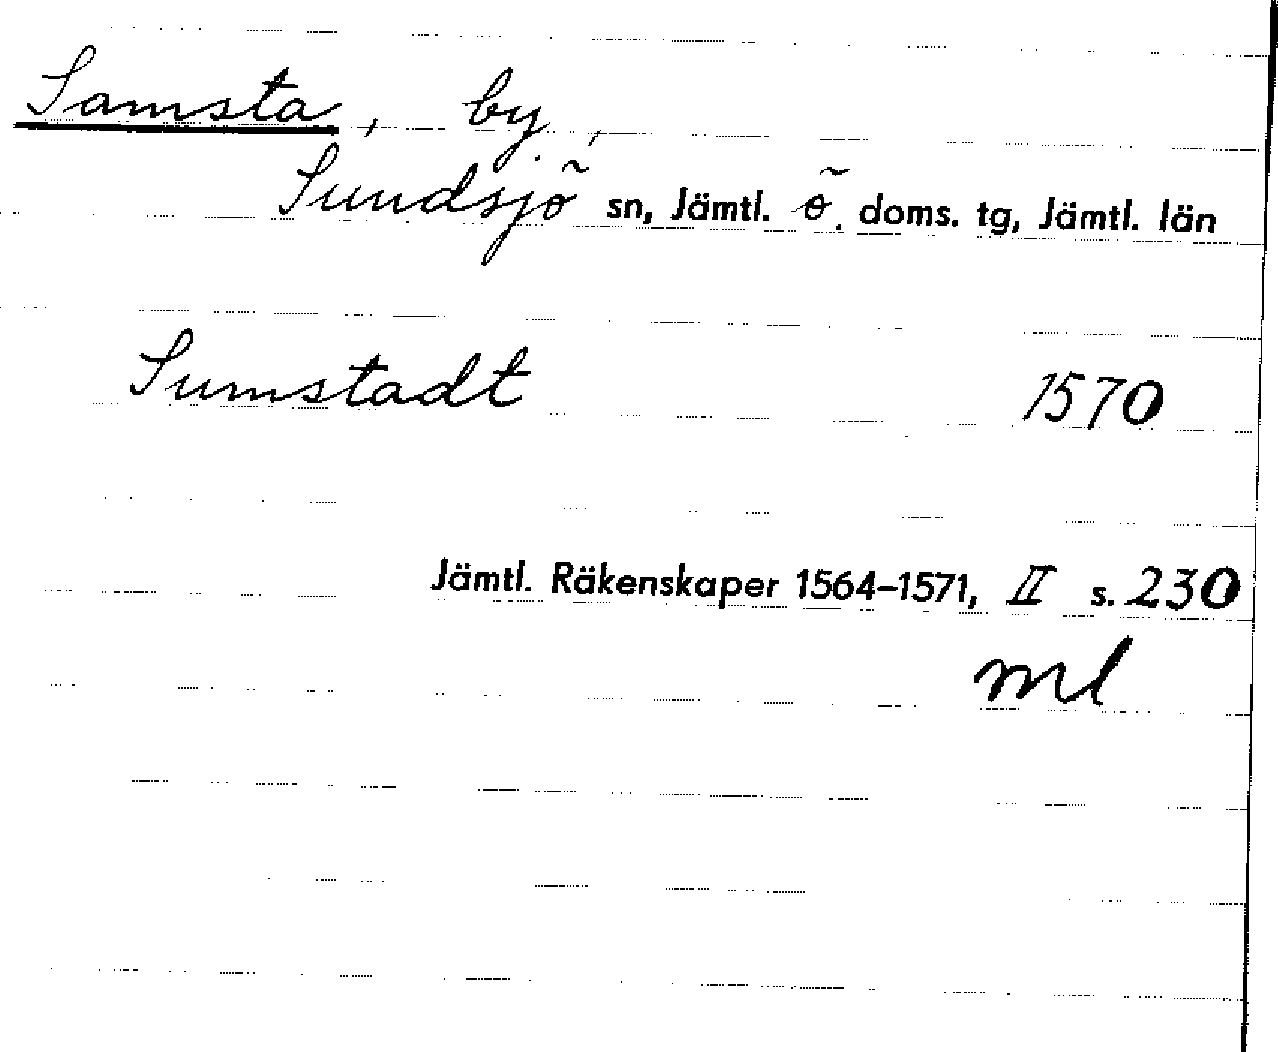 Samsta, by,
Sundsjö sn, Jämtl. ö. doms. tg, Jämtl. län
Sumstadt 1570
Jämtl. Räkenskaper 1564–1571, II s. 230
ml